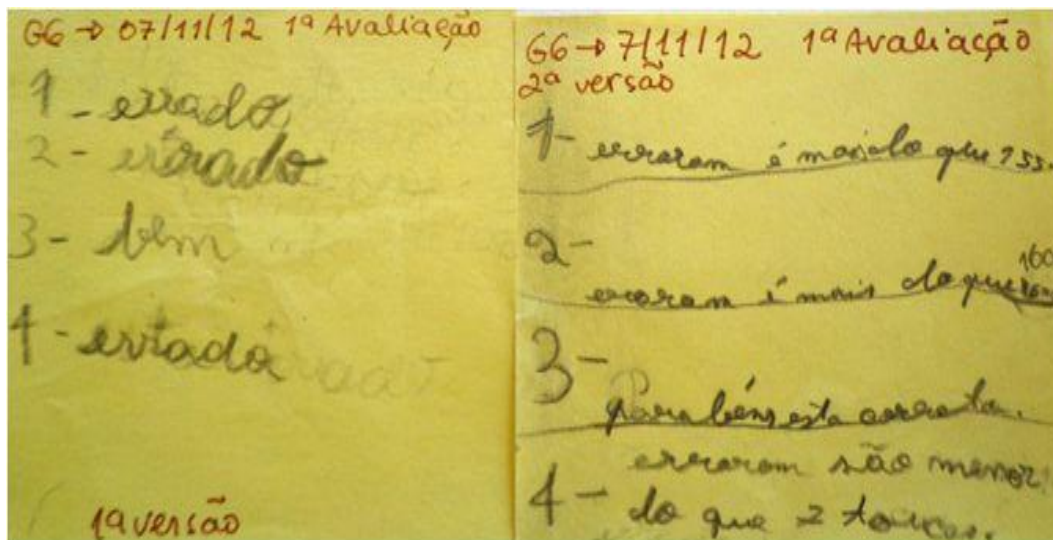 G6 → 07/11/12 1ª Avaliação
1 - errado
2 - errado
3 - bem
4 - errado
1ª versão
G6 → 7/11/12 1ª Avaliação
2ª versão
1- erraram é do que 155
2-
erraram é mais do que
160
3-
Parabéns esta correta.
erraram são menor
4- do que 2